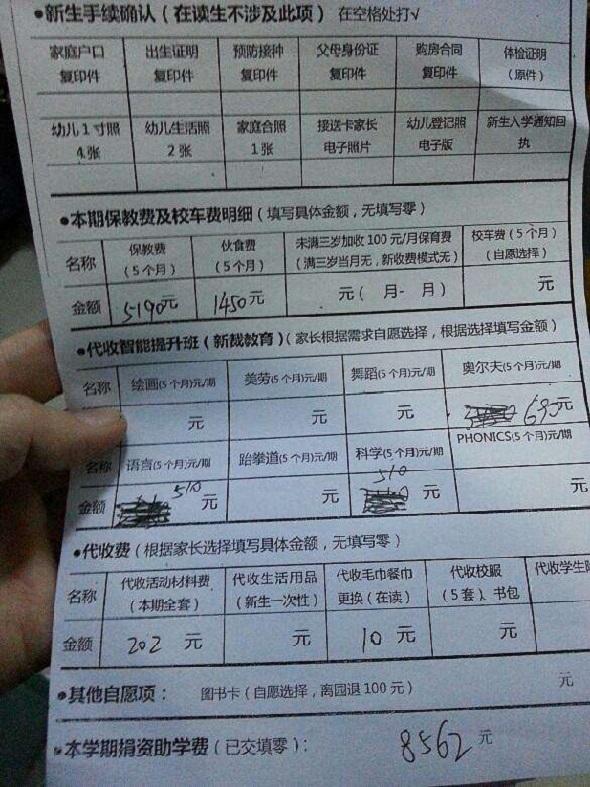 ●新生手续确认（在读生不涉及此项）在空格处打√
家庭户口 出生证明 预防接种 父母身份证 购房合同 体检证明
复印件 复印件 复印件 复印件 复印件 （原件）
幼儿1寸照 幼儿生活照 家庭合照 接送卡家长 幼儿登记照 新生入学通知回
4张 2张 1张 电子照片 电子版 执
●本期保教费及校车费明细（填写具体金额，无填写零）
名称 保教费 伙食费 未满三岁加收100元/月保育费 校车费（5个月）
（5个月） （5个月） （满三岁当月无，新收费模式无） （自愿选择）
金额 5190元 1450元 元（ 月- 月） 元
●代收智能提升班（新裁教育）（家长根据需求自愿选择，根据选择填写金额）
名称 绘画(5个月)元/期 美劳(5个月)元/期 舞蹈(5个月)元/期 奥尔夫(5个月)元/期
元 元 元 690元
名称 语言(5个月)元/期 跆拳道(5个月)元/期 科学(5个月)元/期 PHONICS(5个月)元/期
金额 510元 元 510元 元
●代收费（根据家长选择填写具体金额，无填写零）
名称 代收活动材料费 代收生活用品 代收毛巾餐巾 代收校服 代收学生
（本期全套） （新生一次性） 更换（在读） （5套）、书包
金额 202元 元 10元 元
●其他自愿项： 图书卡（自愿选择，离园退100元） 元
●本学期捐资助学费（已交填零）： 8562元